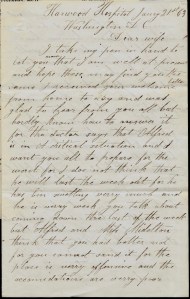 Harwood Hospital, Jany 21st 63
Washington D.C.
Dear wife
I take my pen in hand to
let you that I am well at present
and hope these may find you the
same I received your welcome
from home to day and was
glad to hear from you all but
hardly know how to answer it
for the doctor says that Alfred
is in a critical situation and I
want you all to prepare for the
worst for I do not think that
he will last the week out for he
has bin wasting very fast and
he is very weak you talk about
coming down the last of the week
but Alfred and
think that you had better not
for you cannot find it for the
place is very offensive and the
accomodations are very poor